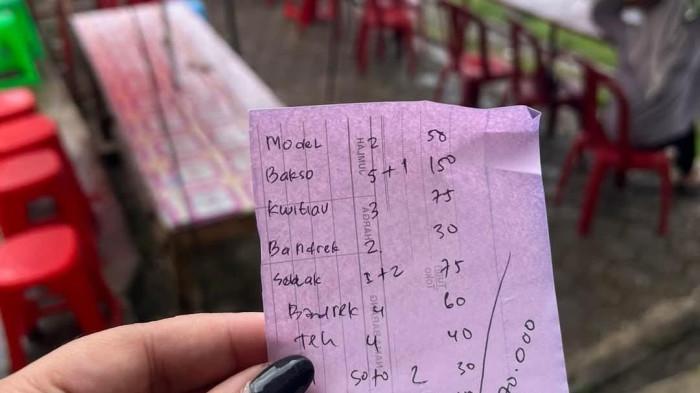 Model 2 50
Bakso 5+1 150
Kwitiau 3 75
Bandrek 2 30
Seblak 1+2 75
Bandrek 4 60
Teh 4 40
Soto 2 30